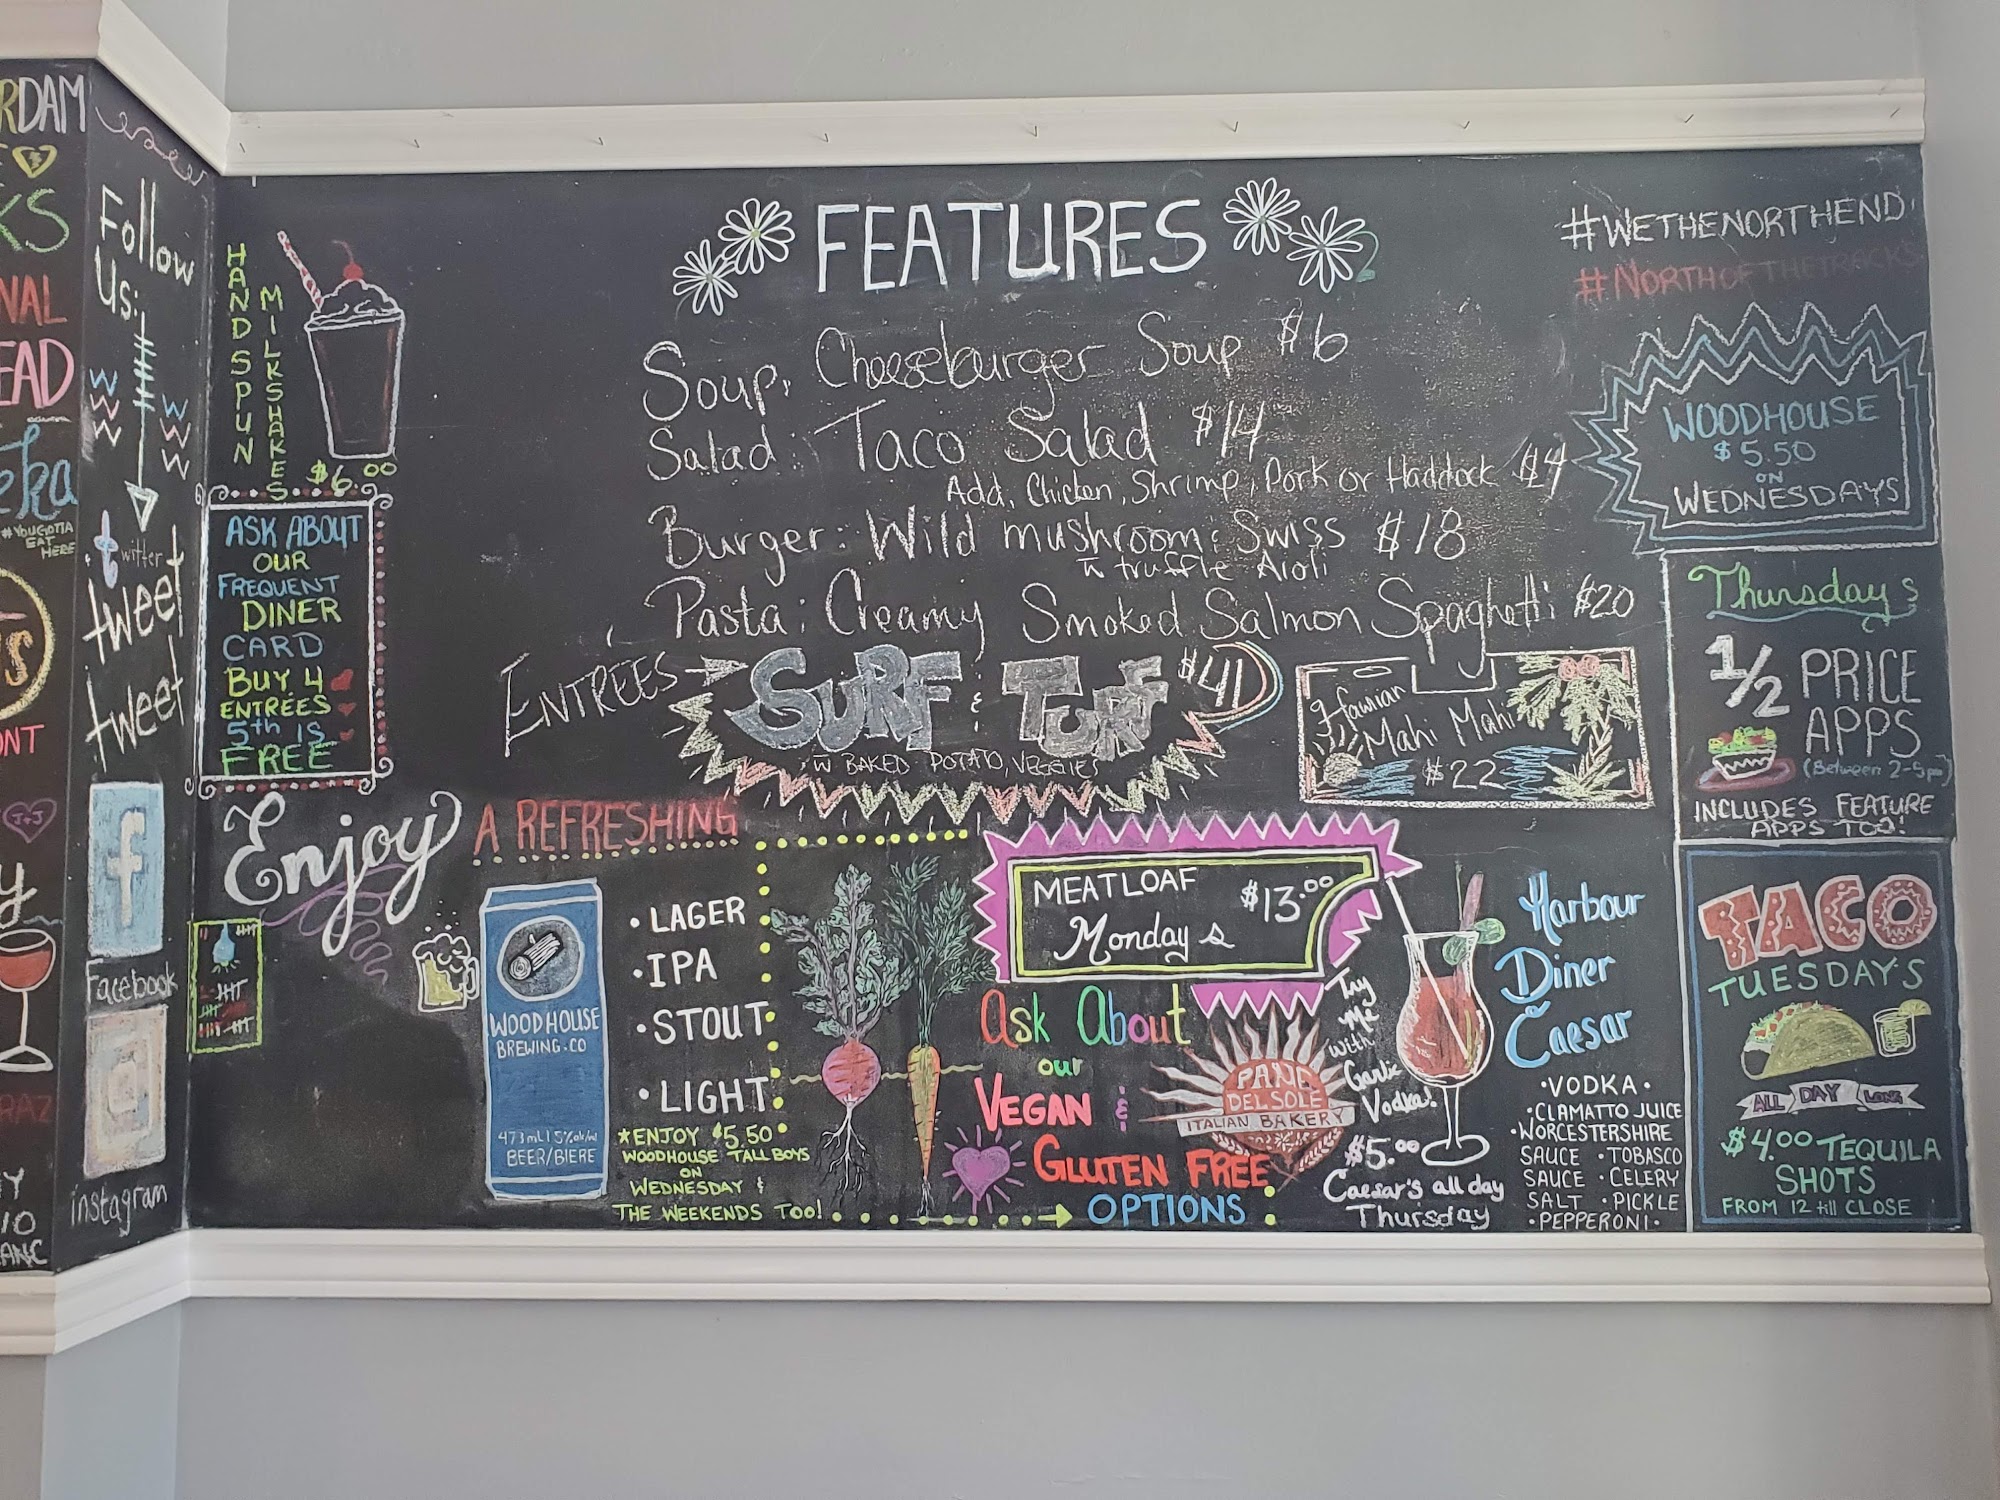 RDAM
KS
NAL
EAD
eka
#YOUGOTTA
EAT
HERE
S
ONT
J+J
y
RAZ
Y
10
ANC
Follow
Us:
twitter
tweet
tweet
Facebook
instagram
HANDSPUN
MILKSHAKES
$6.00
ASK ABOUT
OUR
FREQUENT
DINER
CARD
BUY 4
ENTRÉES
5th IS
FREE
FEATURES
Soup: Cheeseburger Soup $6
Salad: Taco Salad $14
Add, Chicken, Shrimp, Pork or Haddock $14
Burger: Wild mushroom & Swiss $18
w truffle Aioli
Pasta: Creamy Smoked Salmon Spaghetti $20
ENTRÉES
SURF & TURF $41
W BAKED POTATO, VEGGIES
Hawian
Mahi Mahi
$22
#WETHENORTHEND
#NORTHOFTHETRACKS
WOODHOUSE
$5.50
ON
WEDNESDAYS
Thursday's
1/2 PRICE
APPS
(Between 2-5pm)
INCLUDES FEATURE
APPS TOO!
TACO
TUESDAY'S
ALL DAY LONG
$4.00 TEQUILA
SHOTS
FROM 12 till CLOSE
Enjoy
A REFRESHING
WOODHOUSE
BREWING.CO
473mL | 5%alc/vol
BEER/BIERE
• LAGER
• IPA
• STOUT
• LIGHT
*ENJOY $5.50
WOODHOUSE TALL BOYS
ON
WEDNESDAY &
THE WEEKENDS TOO!
MEATLOAF $13.00
Monday's
Ask About
our
VEGAN &
GLUTEN FREE
OPTIONS
PANE
DEL SOLE
ITALIAN BAKERY
Try
Me
with
Garlic
Vodka!
$5.00
Caesar's all day
Thursday
Harbour
Diner
Caesar
•VODKA•
•CLAMATTO JUICE
•WORCESTERSHIRE
SAUCE •TOBASCO
SAUCE •CELERY
SALT •PICKLE
•PEPPERONI•